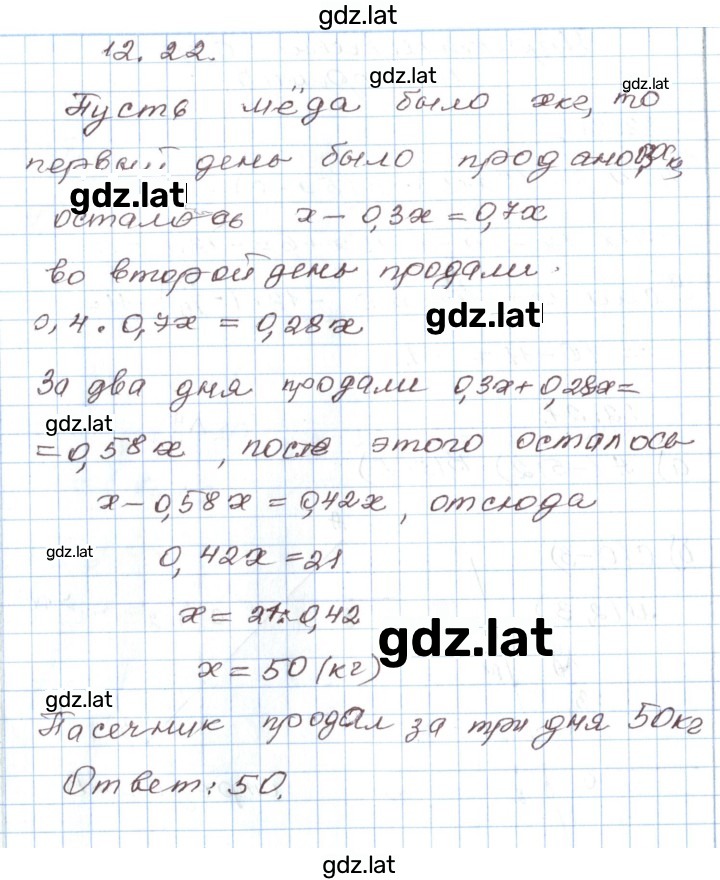 gdz.lat
12.22.
gdz.lat
gdz.lat
Пусть мёда было x кг, то
первый день было продано 0,3x кг,
gdz.lat
осталось x - 0,3x = 0,7x
во второй день продали
0,4 · 0,7x = 0,28x
gdz.lat
За два дня продали 0,3x + 0,28x =
gdz.lat
= 0,58x, после этого осталось
x - 0,58x = 0,42x, отсюда
gdz.lat
0,42x = 21
x = 21 : 0,42
gdz.lat
x = 50 (кг)
gdz.lat
Пасечник продал за три дня 50кг
Ответ: 50.
gdz.lat